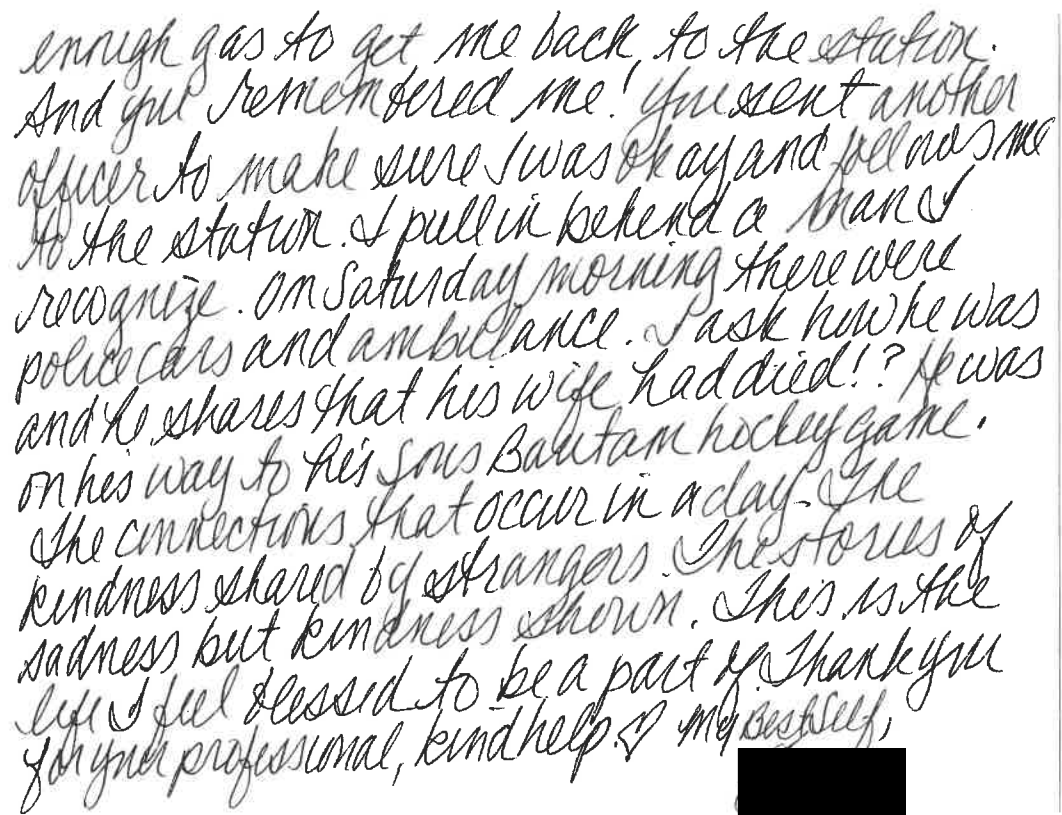 enough gas to get me back to the station.
And you remembered me! You sent another
officer to make sure I was okay and follows me
to the station. I pull in behend a man I
recognize. On Saturday morning there were
police cars and ambulance. I ask how he was
and he shares that his wife had died!? He was
on his way to his sons Bantam hockey game.
The connections that occur in a day. The
kindness shared by strangers. The stories of
sadness but kindness shown. This is the
life I feel blessed to be a part of. Thank you
for your professional, kind help. ♡ My Best Self,